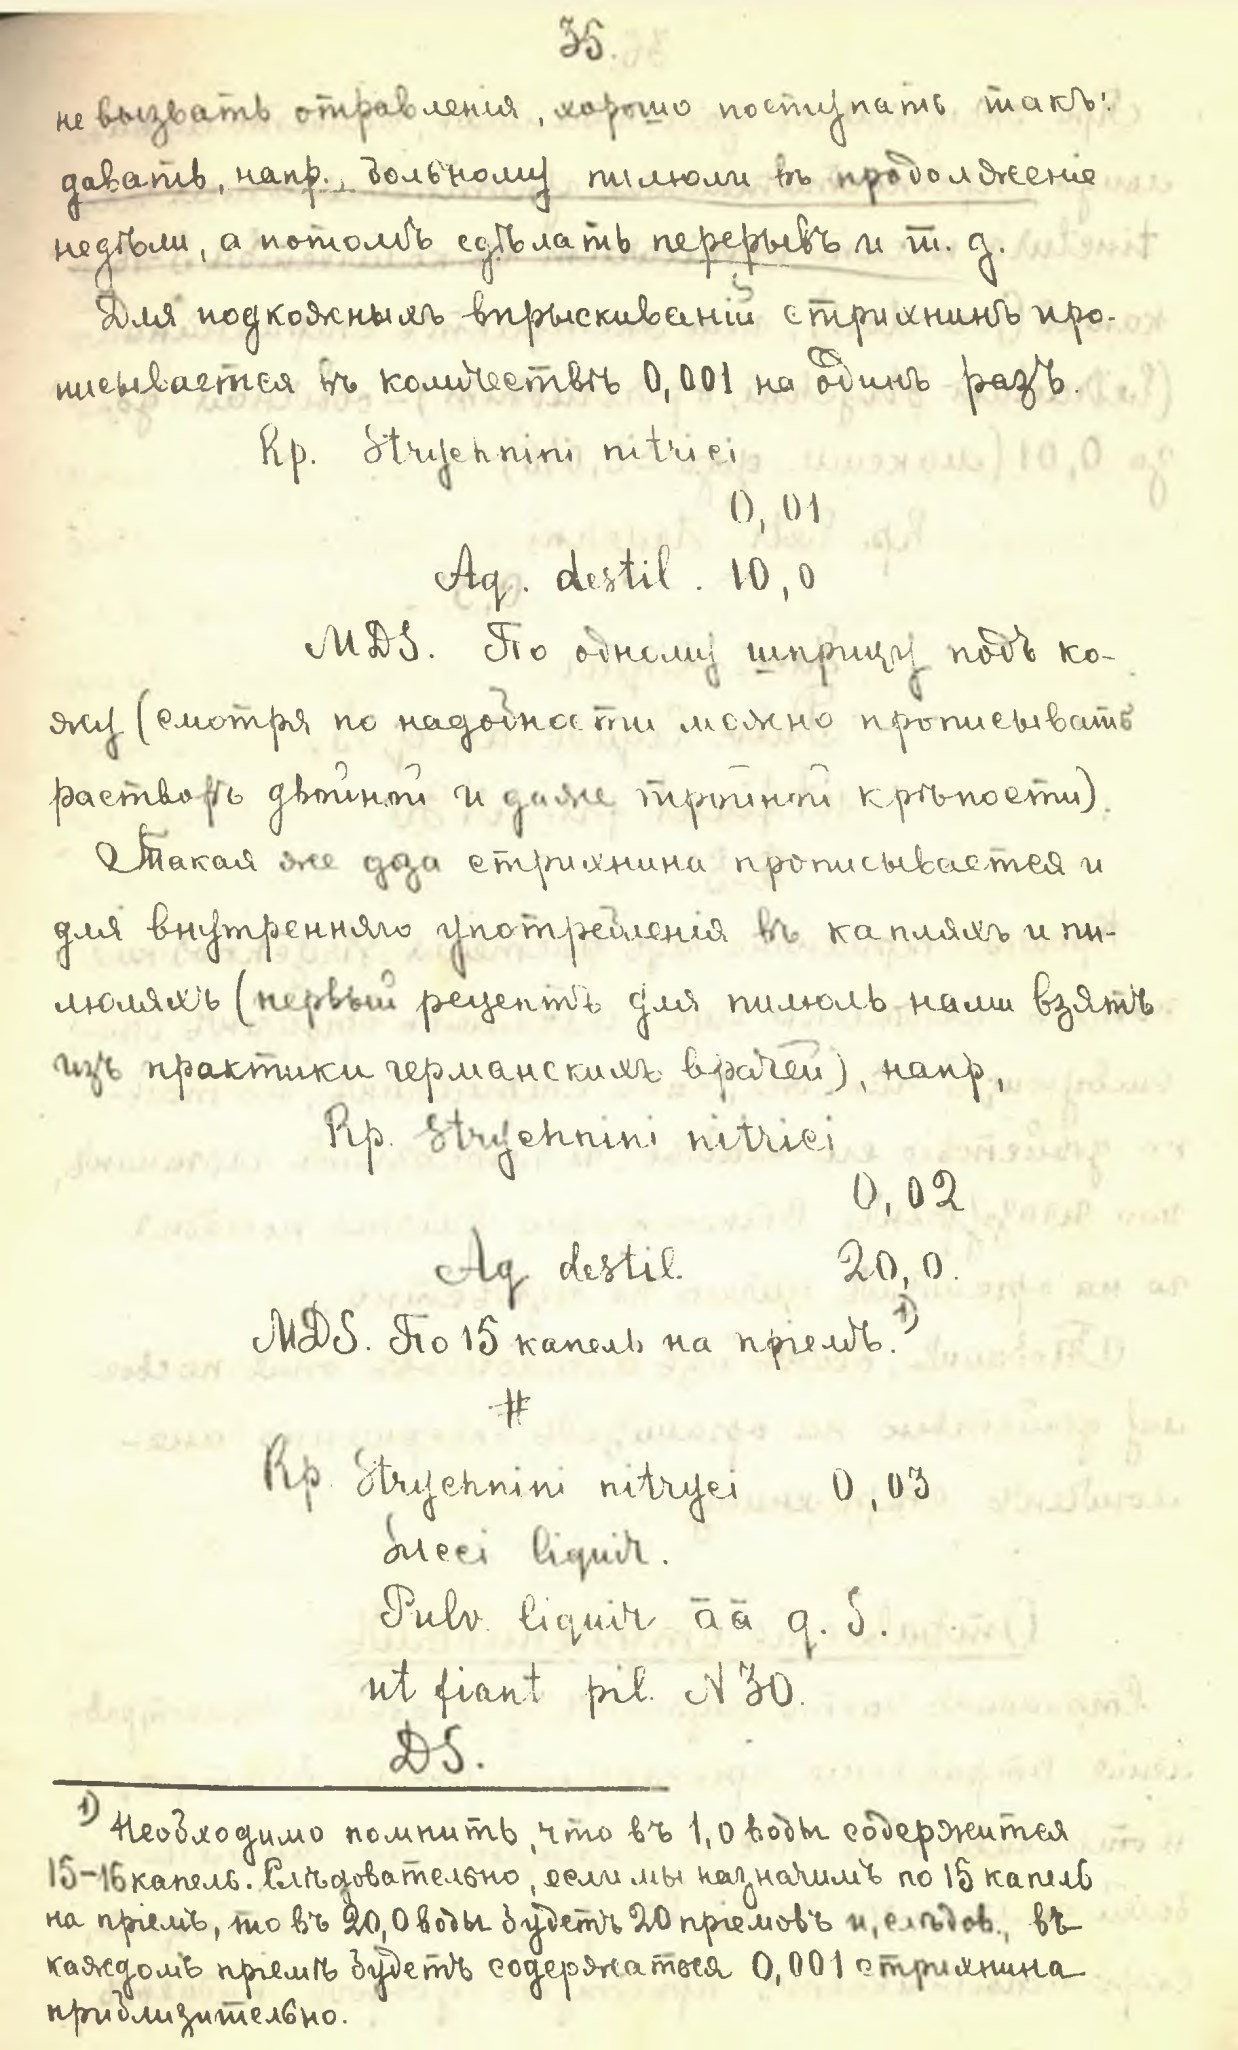 35.
не вызвать отравленія, хорошо поступать такъ:
давать, напр., больному пилюли въ продолженіе
недѣли, а потомъ сдѣлать перерывъ и т. д.
Для подкожныхъ впрыскиваній стрихнинъ про-
писывается въ количествѣ 0,001 на одинъ разъ.
Rp. Strychnini nitrici
0,01
Aq. destil. 10,0
MDS. По одному шприцу подъ ко-
жу (смотря по надобности можно прописывать
растворъ двойной и даже тройной крѣпости).
Такая же доза стрихнина прописывается и
для внутренняго употребленія въ капляхъ и пи-
люляхъ (первый рецептъ для пилюль нами взятъ
изъ практики германскихъ врачей), напр,
Rp. Strychnini nitrici
0,02
Aq destil. 20,0.
MDS. По 15 капель на пріемъ. 1)
#
Rp Strychnini nitryci 0,03
Succi liquir.
Pulv. liquir āā q. S.
ut fiant pil. N 30.
DS.
1) Необходимо помнить, что въ 1,0 воды содержится
15-16 капель. Слѣдовательно, если мы назначимъ по 15 капель
на пріемъ, то въ 20,0 воды будетъ 20 пріемовъ и, слѣдов., въ
каждомъ пріемѣ будетъ содержаться 0,001 стрихнина
приблизительно.